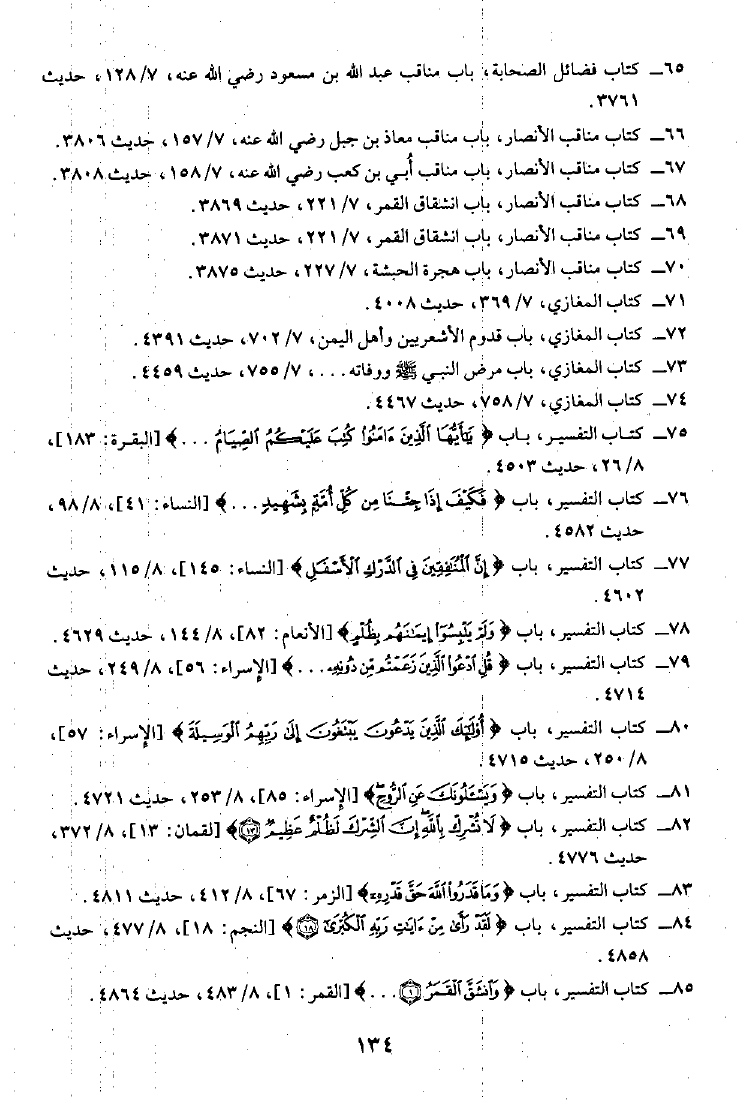 ٦٥ـ كتاب فضائل الصحابة، باب مناقب عبد الله بن مسعود رضي الله عنه، ١٢٨/٧، حديث
٣٧٦١.
٦٦ـ كتاب مناقب الأنصار، باب مناقب معاذ بن جبل رضي الله عنه، ١٥٧/٧، حديث ٣٨٠٦.
٦٧ـ كتاب مناقب الأنصار، باب مناقب أُبي بن كعب رضي الله عنه، ١٥٨/٧، حديث ٣٨٠٨.
٦٨ـ كتاب مناقب الأنصار، باب انشقاق القمر، ٢٢١/٧، حديث ٣٨٦٩.
٦٩ـ كتاب مناقب الأنصار، باب انشقاق القمر، ٢٢١/٧، حديث ٣٨٧١.
٧٠ـ كتاب مناقب الأنصار، باب هجرة الحبشة، ٢٢٧/٧، حديث ٣٨٧٥.
٧١ـ كتاب المغازي، ٣٦٩/٧، حديث ٤٠٠٨.
٧٢ـ كتاب المغازي، باب قدوم الأشعريين وأهل اليمن، ٧٠٢/٧، حديث ٤٣٩١.
٧٣ـ كتاب المغازي، باب مرض النبي ﷺ ووفاته...، ٧٥٥/٧، حديث ٤٤٥٩.
٧٤ـ كتاب المغازي، ٧٥٨/٧، حديث ٤٤٦٧.
٧٥ـ كتاب التفسير، باب ﴿ يَٰٓأَيُّهَا ٱلَّذِينَ ءَامَنُوا۟ كُتِبَ عَلَيْكُمُ ٱلصِّيَامُ ...﴾ [البقرة: ١٨٣]،
٢٦/٨، حديث ٤٥٠٣.
٧٦ـ كتاب التفسير، باب ﴿ فَكَيْفَ إِذَا جِئْنَا مِن كُلِّ أُمَّةٍۭ بِشَهِيدٍ ...﴾ [النساء: ٤١]، ٩٨/٨،
حديث ٤٥٨٢.
٧٧ـ كتاب التفسير، باب ﴿ إِنَّ ٱلْمُنَٰفِقِينَ فِى ٱلدَّرْكِ ٱلْأَسْفَلِ ﴾ [النساء: ١٤٥]، ١١٥/٨، حديث
٤٦٠٢.
٧٨ـ كتاب التفسير، باب ﴿ وَلَمْ يَلْبِسُوٓا۟ إِيمَٰنَهُم بِظُلْمٍ﴾ [الأنعام: ٨٢]، ١٤٤/٨، حديث ٤٦٢٩.
٧٩ـ كتاب التفسير، باب ﴿ قُلِ ٱدْعُوا۟ ٱلَّذِينَ زَعَمْتُم مِّن دُونِهِۦ ...﴾ [الإسراء: ٥٦]، ٢٤٩/٨، حديث
٤٧١٤.
٨٠ـ كتاب التفسير، باب ﴿ أُو۟لَٰٓئِكَ ٱلَّذِينَ يَدْعُونَ يَبْتَغُونَ إِلَىٰ رَبِّهِمُ ٱلْوَسِيلَةَ ﴾ [الإسراء: ٥٧]،
٢٥٠/٨، حديث ٤٧١٥.
٨١ـ كتاب التفسير، باب ﴿ وَيَسْـَٔلُونَكَ عَنِ ٱلرُّوحِ ﴾ [الإسراء: ٨٥]، ٢٥٣/٨، حديث ٤٧٢١.
٨٢ـ كتاب التفسير، باب ﴿ لَا تُشْرِكْ بِٱللَّهِ إِنَّ ٱلشِّرْكَ لَظُلْمٌ عَظِيمٌ ١٣﴾ [لقمان: ١٣]، ٣٧٢/٨،
حديث ٤٧٧٦.
٨٣ـ كتاب التفسير، باب ﴿ وَمَا قَدَرُوا۟ ٱللَّهَ حَقَّ قَدْرِهِۦ﴾ [الزمر: ٦٧]، ٤١٢/٨، حديث ٤٨١١.
٨٤ـ كتاب التفسير، باب ﴿ لَقَدْ رَأَىٰ مِنْ ءَايَٰتِ رَبِّهِ ٱلْكُبْرَىٰٓ ١٨﴾ [النجم: ١٨]، ٤٧٧/٨، حديث
٤٨٥٨.
٨٥ـ كتاب التفسير، باب ﴿ وَٱنشَقَّ ٱلْقَمَرُ ١ ...﴾ [القمر: ١]، ٤٨٣/٨، حديث ٤٨٦٤.
١٣٤